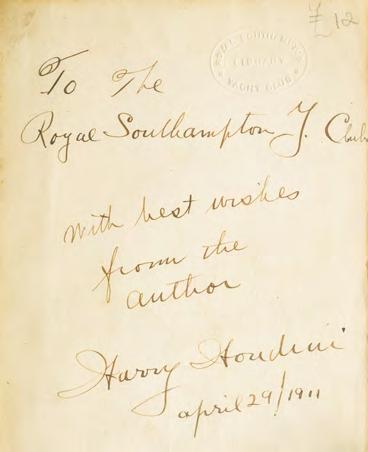 £12
LIBRARY
YACHT CLUB
To The
Royal Southampton Y. Club
with best wishes
from the
author
Harry Houdini
april 29/1911